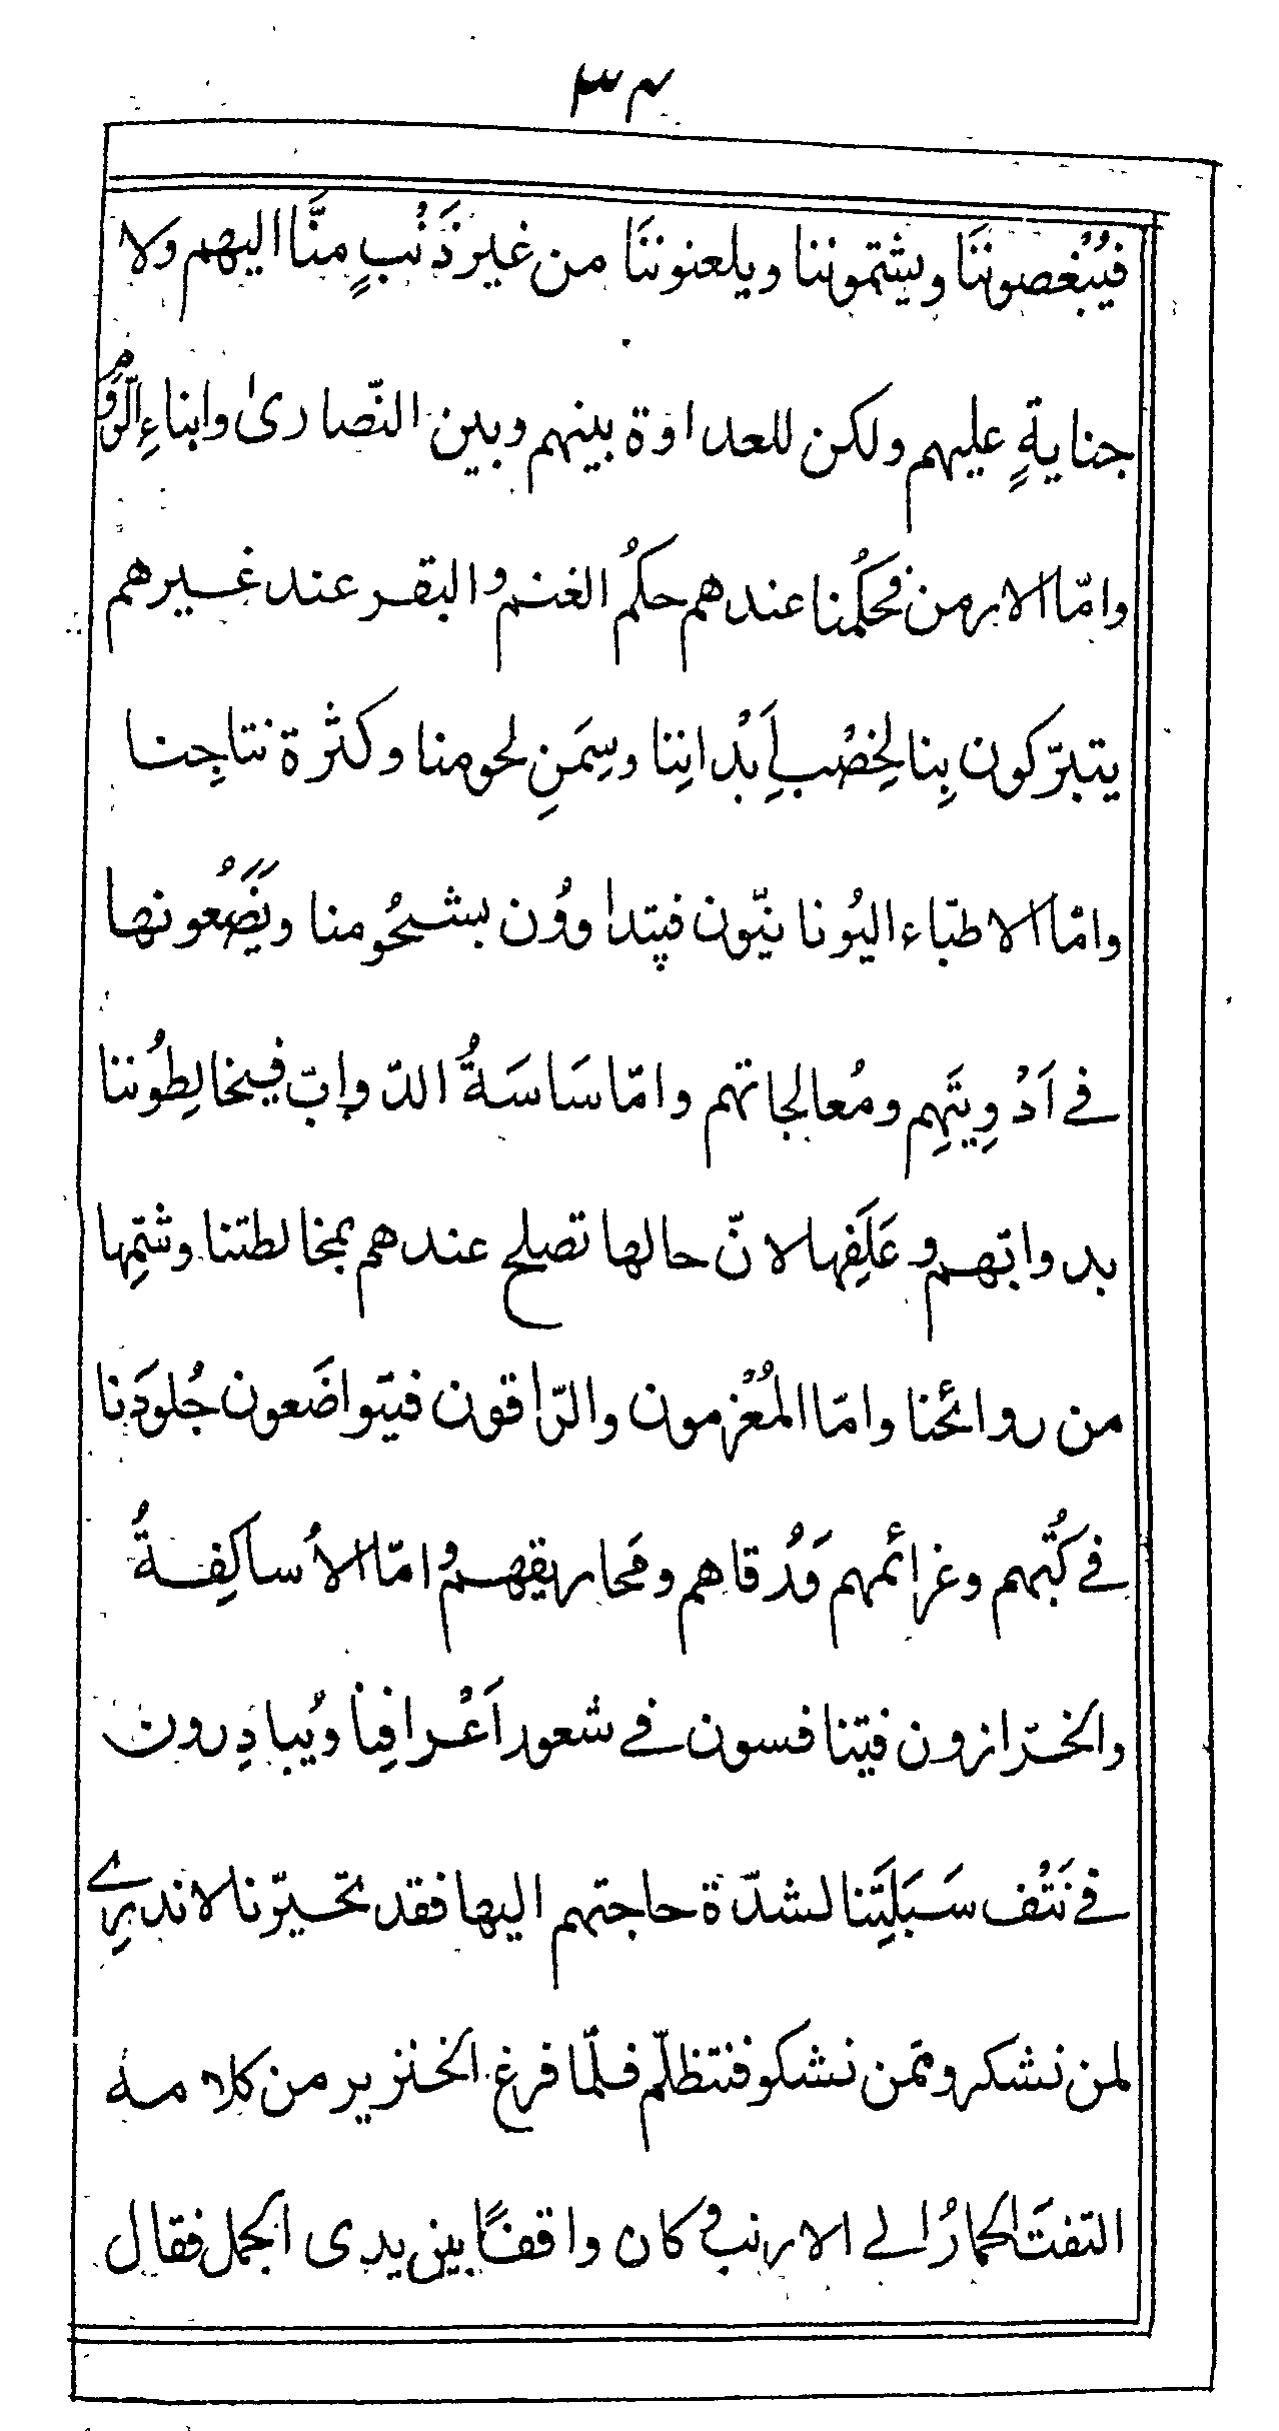 ۳۴
فيُبْغصوننَا ويشتموننا ويلعنوننَا من غير ذَنْبٍ منَّا اليهم ولا
جنايةٍ عليهم ولكن للعداوة بينهم وبين النّصارىٰ وابناءِ الرّوم
وامّا الارمن فحكمُنا عندهم حكمُ الغنم والبقر عند غيرهم
يتبرّكون بِنا لِخِصْبِ اَبْدانِنا وسِمَنِ لحومنا وكثرة نتاجِنا
وامّا الاطبّاء اليُونانيّون فيتداوُون بشحُومنا ويَضَعُونها
في اَدْوِيَتِهِم ومُعالجاتهم وامّا سَاسَةُ الدّوابّ فيخالِطُوننا
بدوابّهم وعَلَفِها لانّ حالها تصلح عندهم بمخالطتنا وشَمّها
من روائحنا وامّا المُعْزمون والرّاقون فيتواضَعون جُلودَنا
في كتُبهم وغزائمهم وَرُقاهم ومَحاريقهم وامّا الاُساكِفةُ
والخرّازون فيتنافسون في شعور اَعْرافِنا ويُبادِرون
في نَتْف سَبَلَتِنا لشدّة حاجتهم اليها فقد تحيّرنا لا ندرِي
لمن نشكر وممّن نشكو فنتظلّم فلمّا فرغ الخنزير من كلامه
التفتَ الحمارُ الى الارنب وكان واقفًا بين يدى الجمل فقال